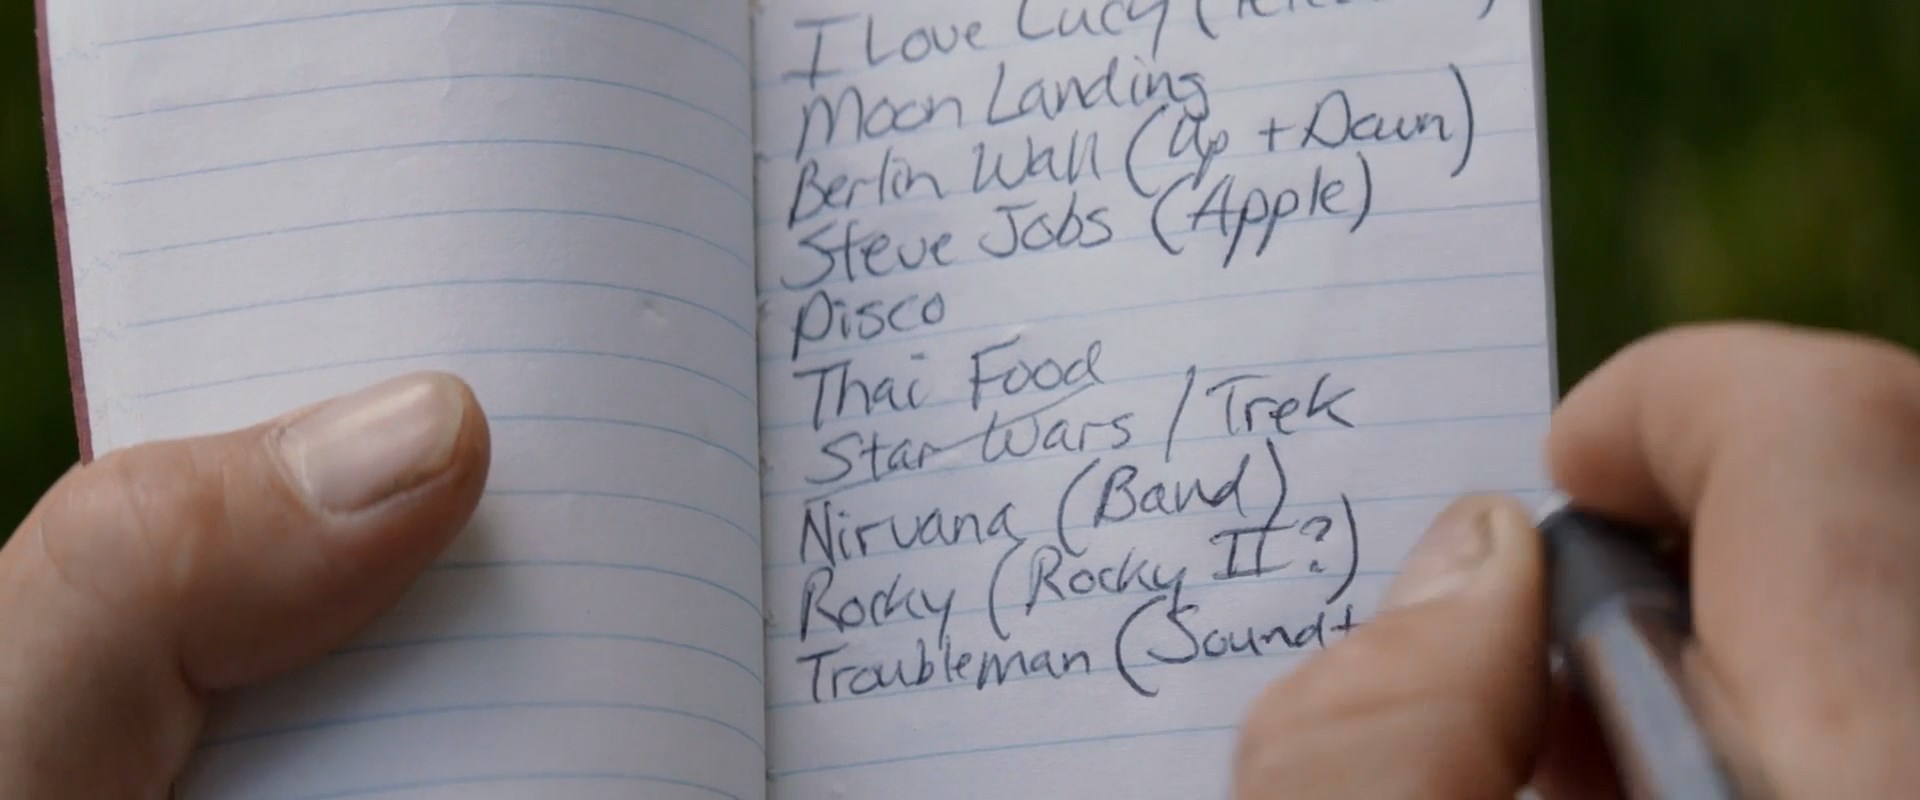 I Love Lucy (
Moon Landing
Berlin Wall (Up + Down)
Steve Jobs (Apple)
Disco
Thai Food
Star Wars / Trek
Nirvana (Band)
Rocky (Rocky II?)
Troubleman (Soundt